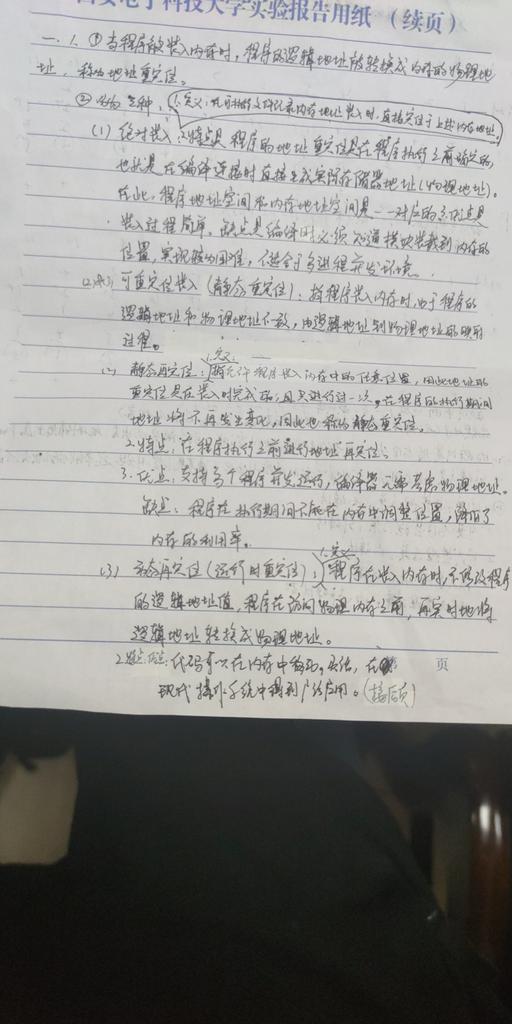 西安电子科技大学实验报告用纸（续页）
一. 1. ① 当程序被装入内存时，程序的逻辑地址被转换成内存的物理地
址，称为地址重定位。
② 分为三种，1.定义：在可执行文件中记录内存地址，装入时，直接定位于上述内存地址
(1) 绝对装入：2.特点是程序的地址重定位是在程序执行之前确定的，
也就是在编译连接时直接生成实际存储器地址（物理地址）。
在此，程序地址空间和内存地址空间是一一对应的
装入过程简单，缺点是编译时必须知道模块装载到内存的
位置，实现较为困难，不适合于多进程并发环境。
可重定位装入（静态重定位）：将程序装入内存时，由于程序的
逻辑地址和物理地址不一致，由逻辑地址到物理地址的映射
过程。
静态再定位：1.定义：允许程序装入内存中的任意位置，因此地址的
重定位是在装入时完成的，且只进行过一次。在程序的执行期间
地址将不再发生变化，因此也称为静态重定位。
2.特点：在程序执行之前进行地址再定位。
3.优点：支持多个程序并发运行，编译器无需考虑物理地址。
缺点：程序在执行期间不能在内存中调整位置，降低了
内存的利用率。
(3) 动态再定位（运行时重定位）：1.定义 程序在装入内存时，不修改程序
的逻辑地址值，程序在访问物理内存之前，再实时地将
逻辑地址转换成物理地址。
2.优点：代码可以在内存中移动，在
页
现代操作系统中得到广泛应用。（接后页）